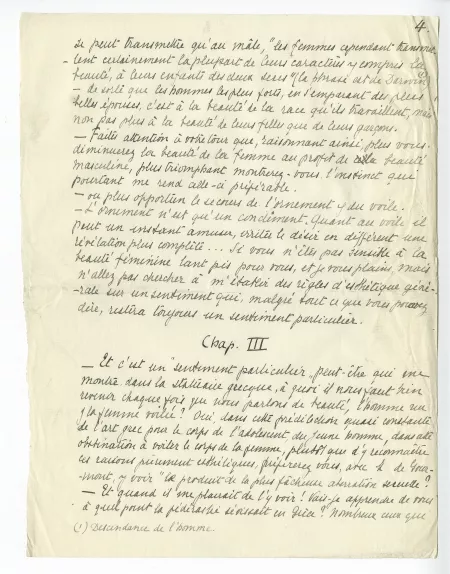 4
se peut transmettre qu'au mâle, "les femmes cependant transmet-
tent certainement la plupart de leurs caractères y compris la
beauté, à leurs enfants des deux sexes" (la phrase est de Darwin)
- de sorte que les hommes les plus forts, en s'emparant des plus
belles épouses, c'est à la beauté de la race qu'ils travaillent, mais
non pas plus à la beauté de leurs filles que de leurs garçons.
— Faites attention à votre tour que, raisonnant ainsi, plus vous
diminuerez la beauté de la femme au profit de la beauté
masculine, plus triomphant montrerez-vous l'instinct qui
pourtant me rend celle-ci préférable.
— ou plus opportun le secours de l'ornement et du voile.
— L'ornement n'est qu'un condiment. Quant au voile il
peut un instant amuser, irriter le désir en différant une
révélation plus complète... Si vous n'êtes pas sensible à la
beauté féminine tant pis pour vous, et je vous plains, mais
n'allez pas chercher à m'établir des règles d'esthétique géné-
rale sur un sentiment qui, malgré tout ce que vous pourrez
dire, restera toujours un sentiment particulier.
Chap. III
— Et c'est un "sentiment particulier" peut-être qui me
montre dans la statuaire grecque, à quoi il nous faut bien
revenir chaque fois que nous parlons de beauté, l'homme nu
et la femme voilée? Oui, dans cette prédilection quasi constante
de l'art grec pour le corps de l'adolescent, du jeune homme, dans cette
obstination à voiler le corps de la femme, plutôt que d'y reconnaître
des raisons purement esthétiques, préférez vous, avec M. de Gour-
mont, y voir "le produit de la plus fâcheuse aberration sexuelle?"
— Et quand il me plairait de l'y voir! Vais-je apprendre de vous
à quel point la pédérastie sévissait en Grèce? Nombreux ceux que
(1) Descendance de l'homme